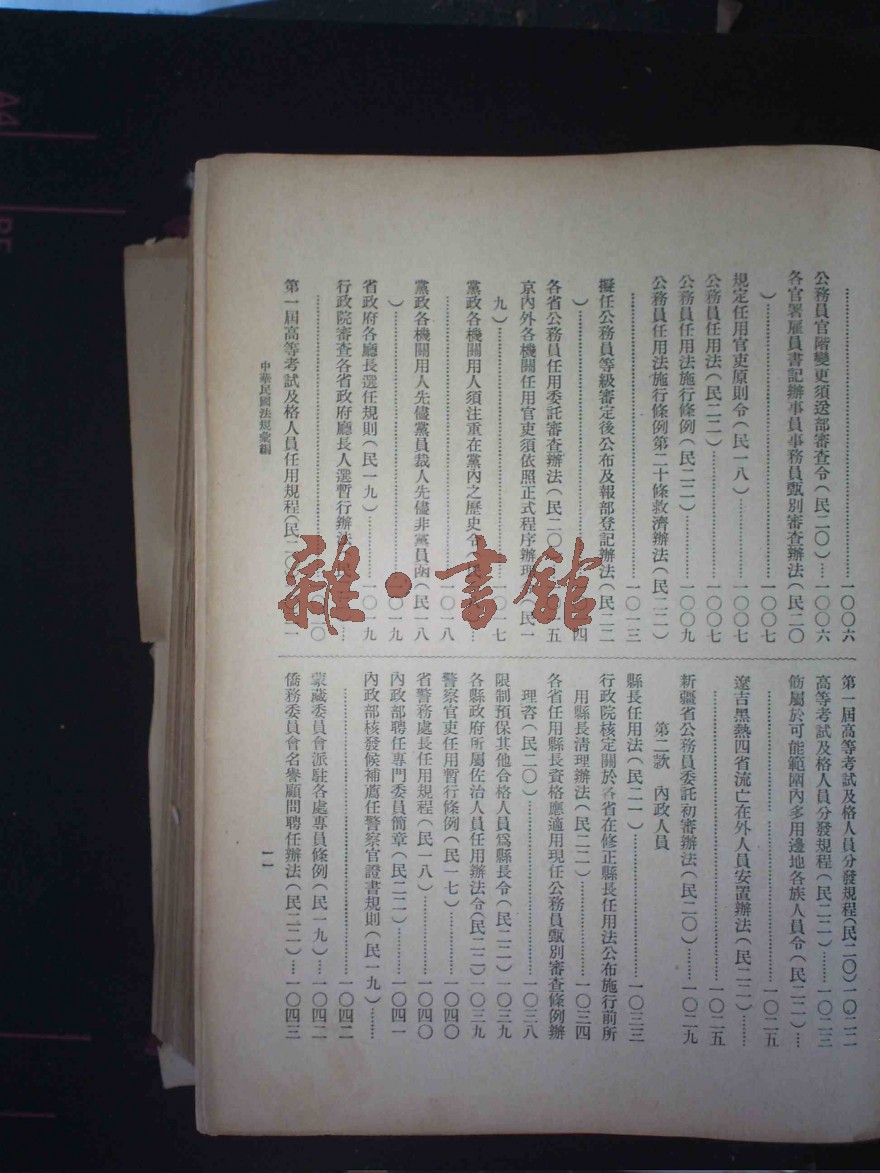 ……………………………………一〇〇六
公務員官階變更須送部審查令(民二〇)…一〇〇六
各官署雇員書記辦事員事務員甄別審查辦法(民二〇
)……………………………………一〇〇七
規定任用官吏原則令(民一八)……………一〇〇七
公務員任用法(民二二)……………………一〇〇七
公務員任用法施行條例(民二二)…………一〇〇九
公務員任用法施行條例第二十條救濟辦法(民二二)
……………………………………一〇一三
擬任公務員等級審定後公布及報部登記辦法(民二二
)……………………………………四
各省公務員任用委託審查辦法(民二〇 五
京內外各機關任用官吏須依照正式程序辦理 (民一
九)……………………………………一〇一七
黨政各機關用人須注重在黨內之歷史令
……………………………………一〇一八
黨政各機關用人先儘黨員裁人先儘非黨員函(民一八
)……………………………………一〇一九
省政府各廳長選任規則(民一九)…………一〇一九
行政院審查各省政府廳長人選暫行辦法 ……
……………………………………二〇
第一屆高等考試及格人員任用規程(民二〇 二一
第一屆高等考試及格人員分發規程(民二〇)一〇二二
高等考試及格人員分發規程(民二二)……一〇二三
飭屬於可能範圍內多用邊地各族人員令(民二二)…
……………………………………一〇二五
遼吉黑熱四省流亡在外人員安置辦法(民二二)……
……………………………………一〇二五
新疆省公務員委託初審辦法(民二〇)……一〇二九
第二款 內政人員
縣長任用法(民二一)………………………一〇三三
行政院核定關於各省在修正縣長任用法公布施行前所
用縣長清理辦法(民二二)………………一〇三四
各省任用縣長資格應適用現任公務員甄別審查條例辦
理咨(民二〇)……………………………一〇三八
限制預保其他合格人員為縣長令(民二二)一〇三九
各縣政府所屬佐治人員任用辦法令(民二二)一〇三九
警察官吏任用暫行條例(民一七)…………一〇四〇
省警務處長任用規程(民一八)……………一〇四〇
內政部聘任專門委員簡章(民二二)………一〇四一
內政部核發候補薦任警察官證書規則(民一九)……
……………………………………一〇四二
蒙藏委員會派駐各處專員條例(民一九)…一〇四二
僑務委員會名譽顧問聘任辦法(民二二)…一〇四三
中華民國法規彙編
一一
雜·書館